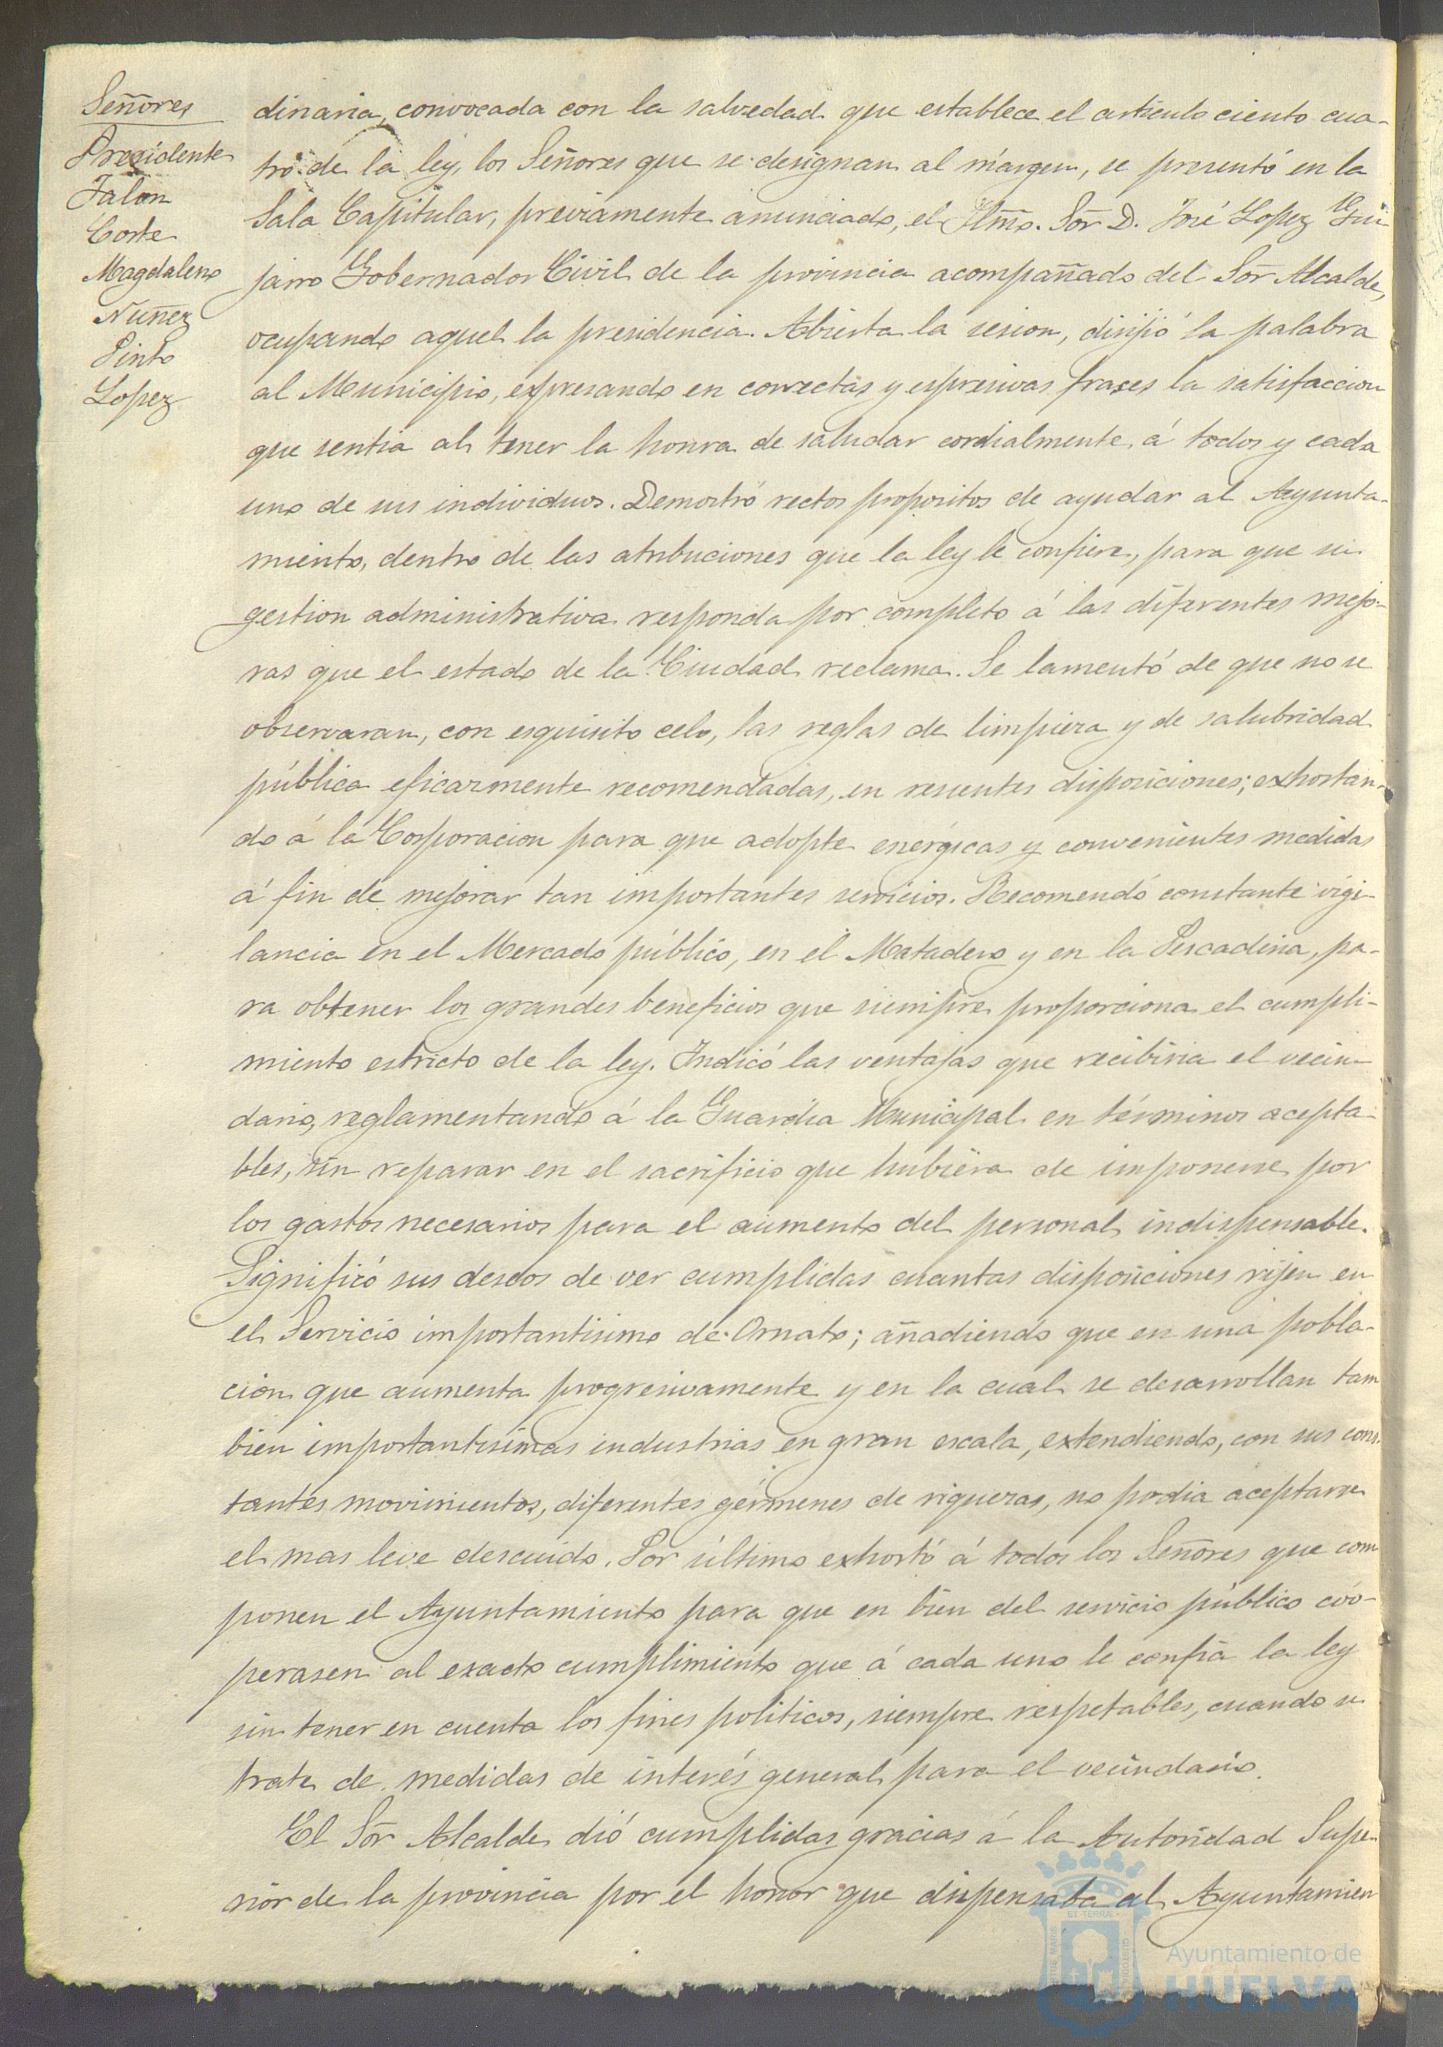 Señores
Presidente
Jalon
Corte
Magdaleno
Nuñez
Pinto
Lopez
dinaria, convocada con la salvedad que establece el articulo ciento cua-
tro de la ley, los Señores que se designan al márgen, se presentó en la
Sala Capitular, previamente anunciado, el Iltmo. Sor D. José Lopez Gui
jarro Gobernador Civil de la provincia acompañado del Sor Alcalde,
ocupando aquel la presidencia. Abierta la sesion, dirijió la palabra
al Municipio, expresando en correctas y espresivas frases la satisfaccion
que sentia al tener la honra de saludar cordialmente á todos y cada
uno de sus individuos. Demostró rectos propositos de ayudar al Ayunta-
miento, dentro de las atribuciones que la ley le confiere, para que su
gestion administrativa responda por completo á las diferentes mejo-
ras que el estado de la Ciudad reclama. Se lamentó de que no se
observaran, con esquisito celo, las reglas de limpieza y de salubridad
pública eficazmente recomendadas, en recientes disposiciones; exhortan-
do á la Corporacion para que adopte enérgicas y convenientes medidas
á fin de mejorar tan importantes servicios. Recomendó constante vigi-
lancia en el Mercado público, en el Matadero y en la Pescaderia, pa-
ra obtener los grandes beneficios que siempre proporciona el cumpli-
miento estricto de la ley. Indicó las ventajas que recibiria el vecin-
dario, reglamentando á la Guardia Municipal en términos acepta-
bles, sin reparar en el sacrificio que hubiera de imponerse por
los gastos necesarios para el aumento del personal indispensable.
Significó sus deseos de ver cumplidas cuantas disposiciones rijen en
el Servicio importantisimo de Ornato; añadiendo que en una pobla-
cion que aumenta progresivamente y en la cual se desarrollan tam
bien importantisimas industrias en gran escala, extendiendo, con sus cons-
tantes movimientos, diferentes gérmenes de riquezas, no podia aceptarse
el mas leve descuido. Por último exhortó á todos los Señores que com
ponen el Ayuntamiento para que en bien del servicio público coo-
perasen al exacto cumplimiento que á cada uno le confia la ley
sin tener en cuenta los fines politicos, siempre respetables, cuando se
trate de medidas de interés general para el vecindario.
El Sor Alcalde dió cumplidas gracias á la Autoridad Supe-
rior de la provincia por el honor que dispensaba al Ayuntamien
Ayuntamiento de
HUELVA